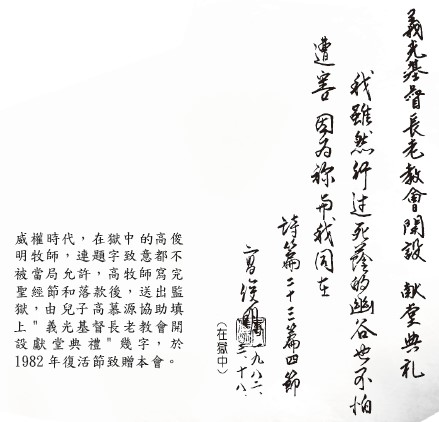 義光基督長老教會開設 献堂典礼
我雖然行过死蔭的幽谷也不怕
遭害 因为祢与我同在
詩篇二十三篇四節
高俊明 一九八二、三、十八、
(在獄中)
威權時代，在獄中的高俊
明牧師，連題字致意都不
被當局允許。高牧師寫完
聖經節和落款後，送出監
獄，由兒子高慕源協助填
上"義光基督長老教會開
設獻堂典禮"幾字，於
1982年復活節致贈本會。